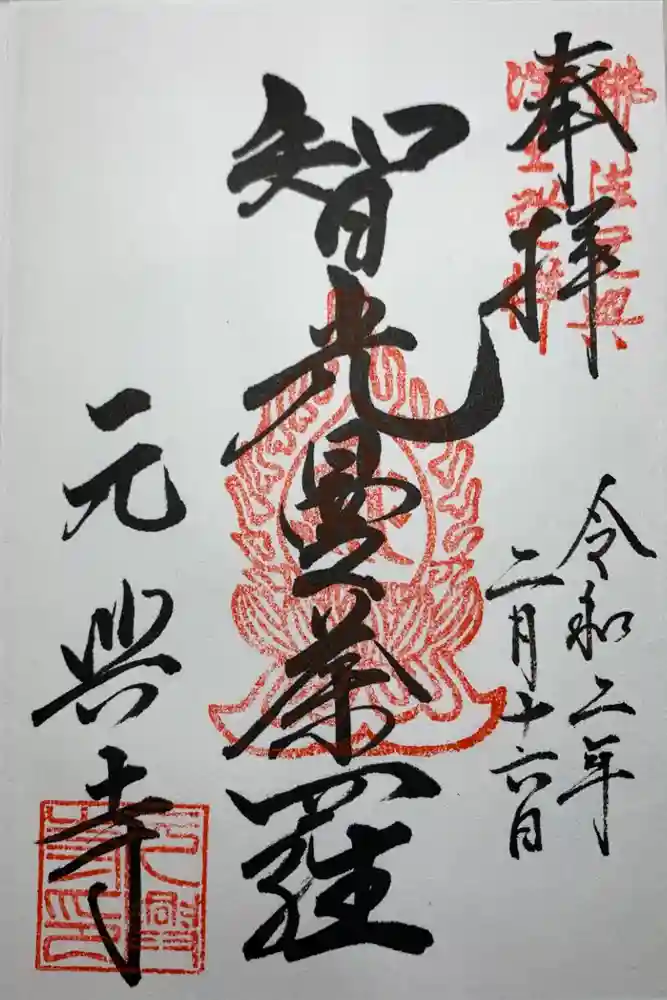 奉拝
令和二年
二月十六日
智光曼荼羅
元興寺